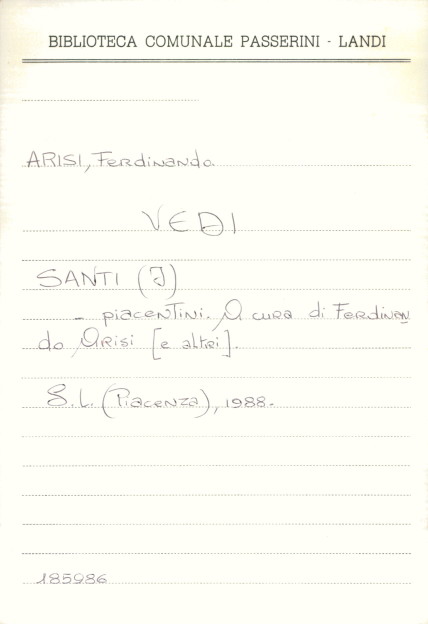 BIBLIOTECA COMUNALE PASSERINI - LANDI
ARISI, Ferdinando.
VEDI
SANTI (I)
- piacentini. A cura di Ferdinan
do Arisi [e altri].
S.L. (Piacenza), 1988.
185986